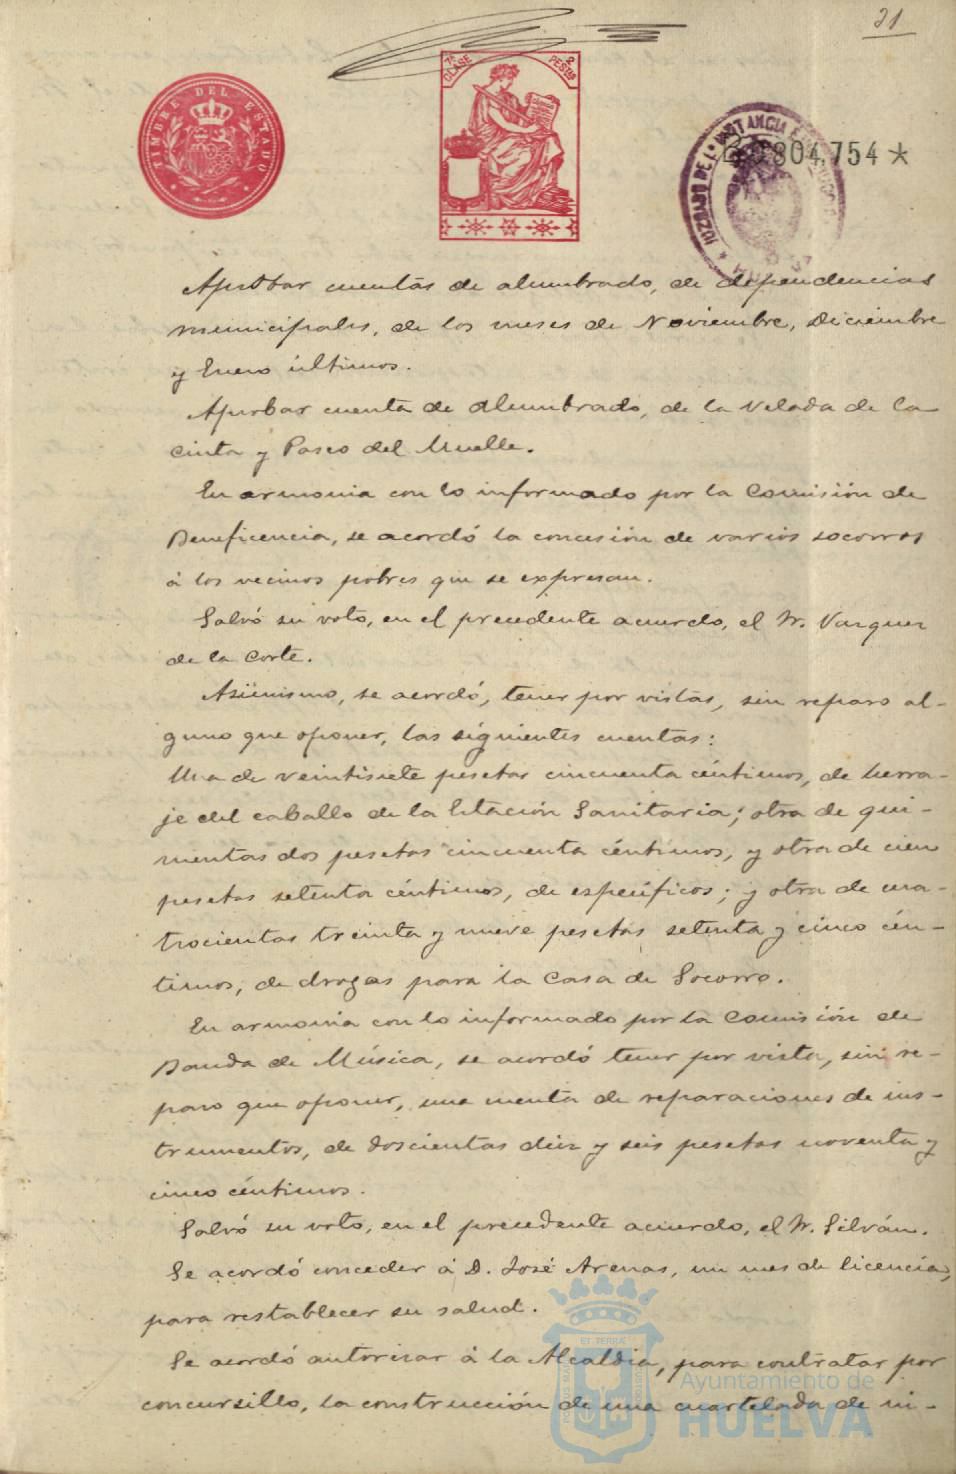 21
TIMBRE DEL ESTADO
7ª CLASE
2 PESTAS
JUZGADO DE 1ª INSTANCIA E
804,754 *
Aprobar cuentas de alumbrado, de dependencias
municipales, de los meses de Noviembre, Diciembre
y Enero últimos.
Aprobar cuenta de alumbrado, de la Velada de la
Cinta y Paseo del Muelle.
En armonia con lo informado por la Comisión de
Beneficencia, se acordó la concesión de varios socorros
á los vecinos pobres que se expresan.
Salvó su voto, en el precedente acuerdo, el Sr. Vazquez
de la Corte.
Asimismo, se acordó, tener por vistas, sin reparo al-
guno que oponer, las siguientes cuentas:
Una de veintisiete pesetas cincuenta céntimos, de herra-
je del caballo de la Estación Sanitaria; otra de qui-
nientas dos pesetas cincuenta céntimos, y otra de cien
pesetas setenta céntimos, de específicos; y otra de cua-
trocientas treinta y nueve pesetas setenta y cinco cén-
timos, de drogas para la Casa de Socorro.
En armonia con lo informado por la Comisión de
Banda de Música, se acordó tener por vista, sin re-
paro que oponer, una cuenta de reparaciones de ins-
trumentos, de doscientas diez y seis pesetas noventa y
cinco céntimos.
Salvó su voto, en el precedente acuerdo, el Sr. Silván.
Se acordó conceder á D. José Arenas, un mes de licencia,
para restablecer su salud.
Se acordó autorizar á la Alcaldia, para contratar por
concursillo, la construcción de una cuartelada de ni-
ET TERRÆ
Ayuntamiento de
HUELVA